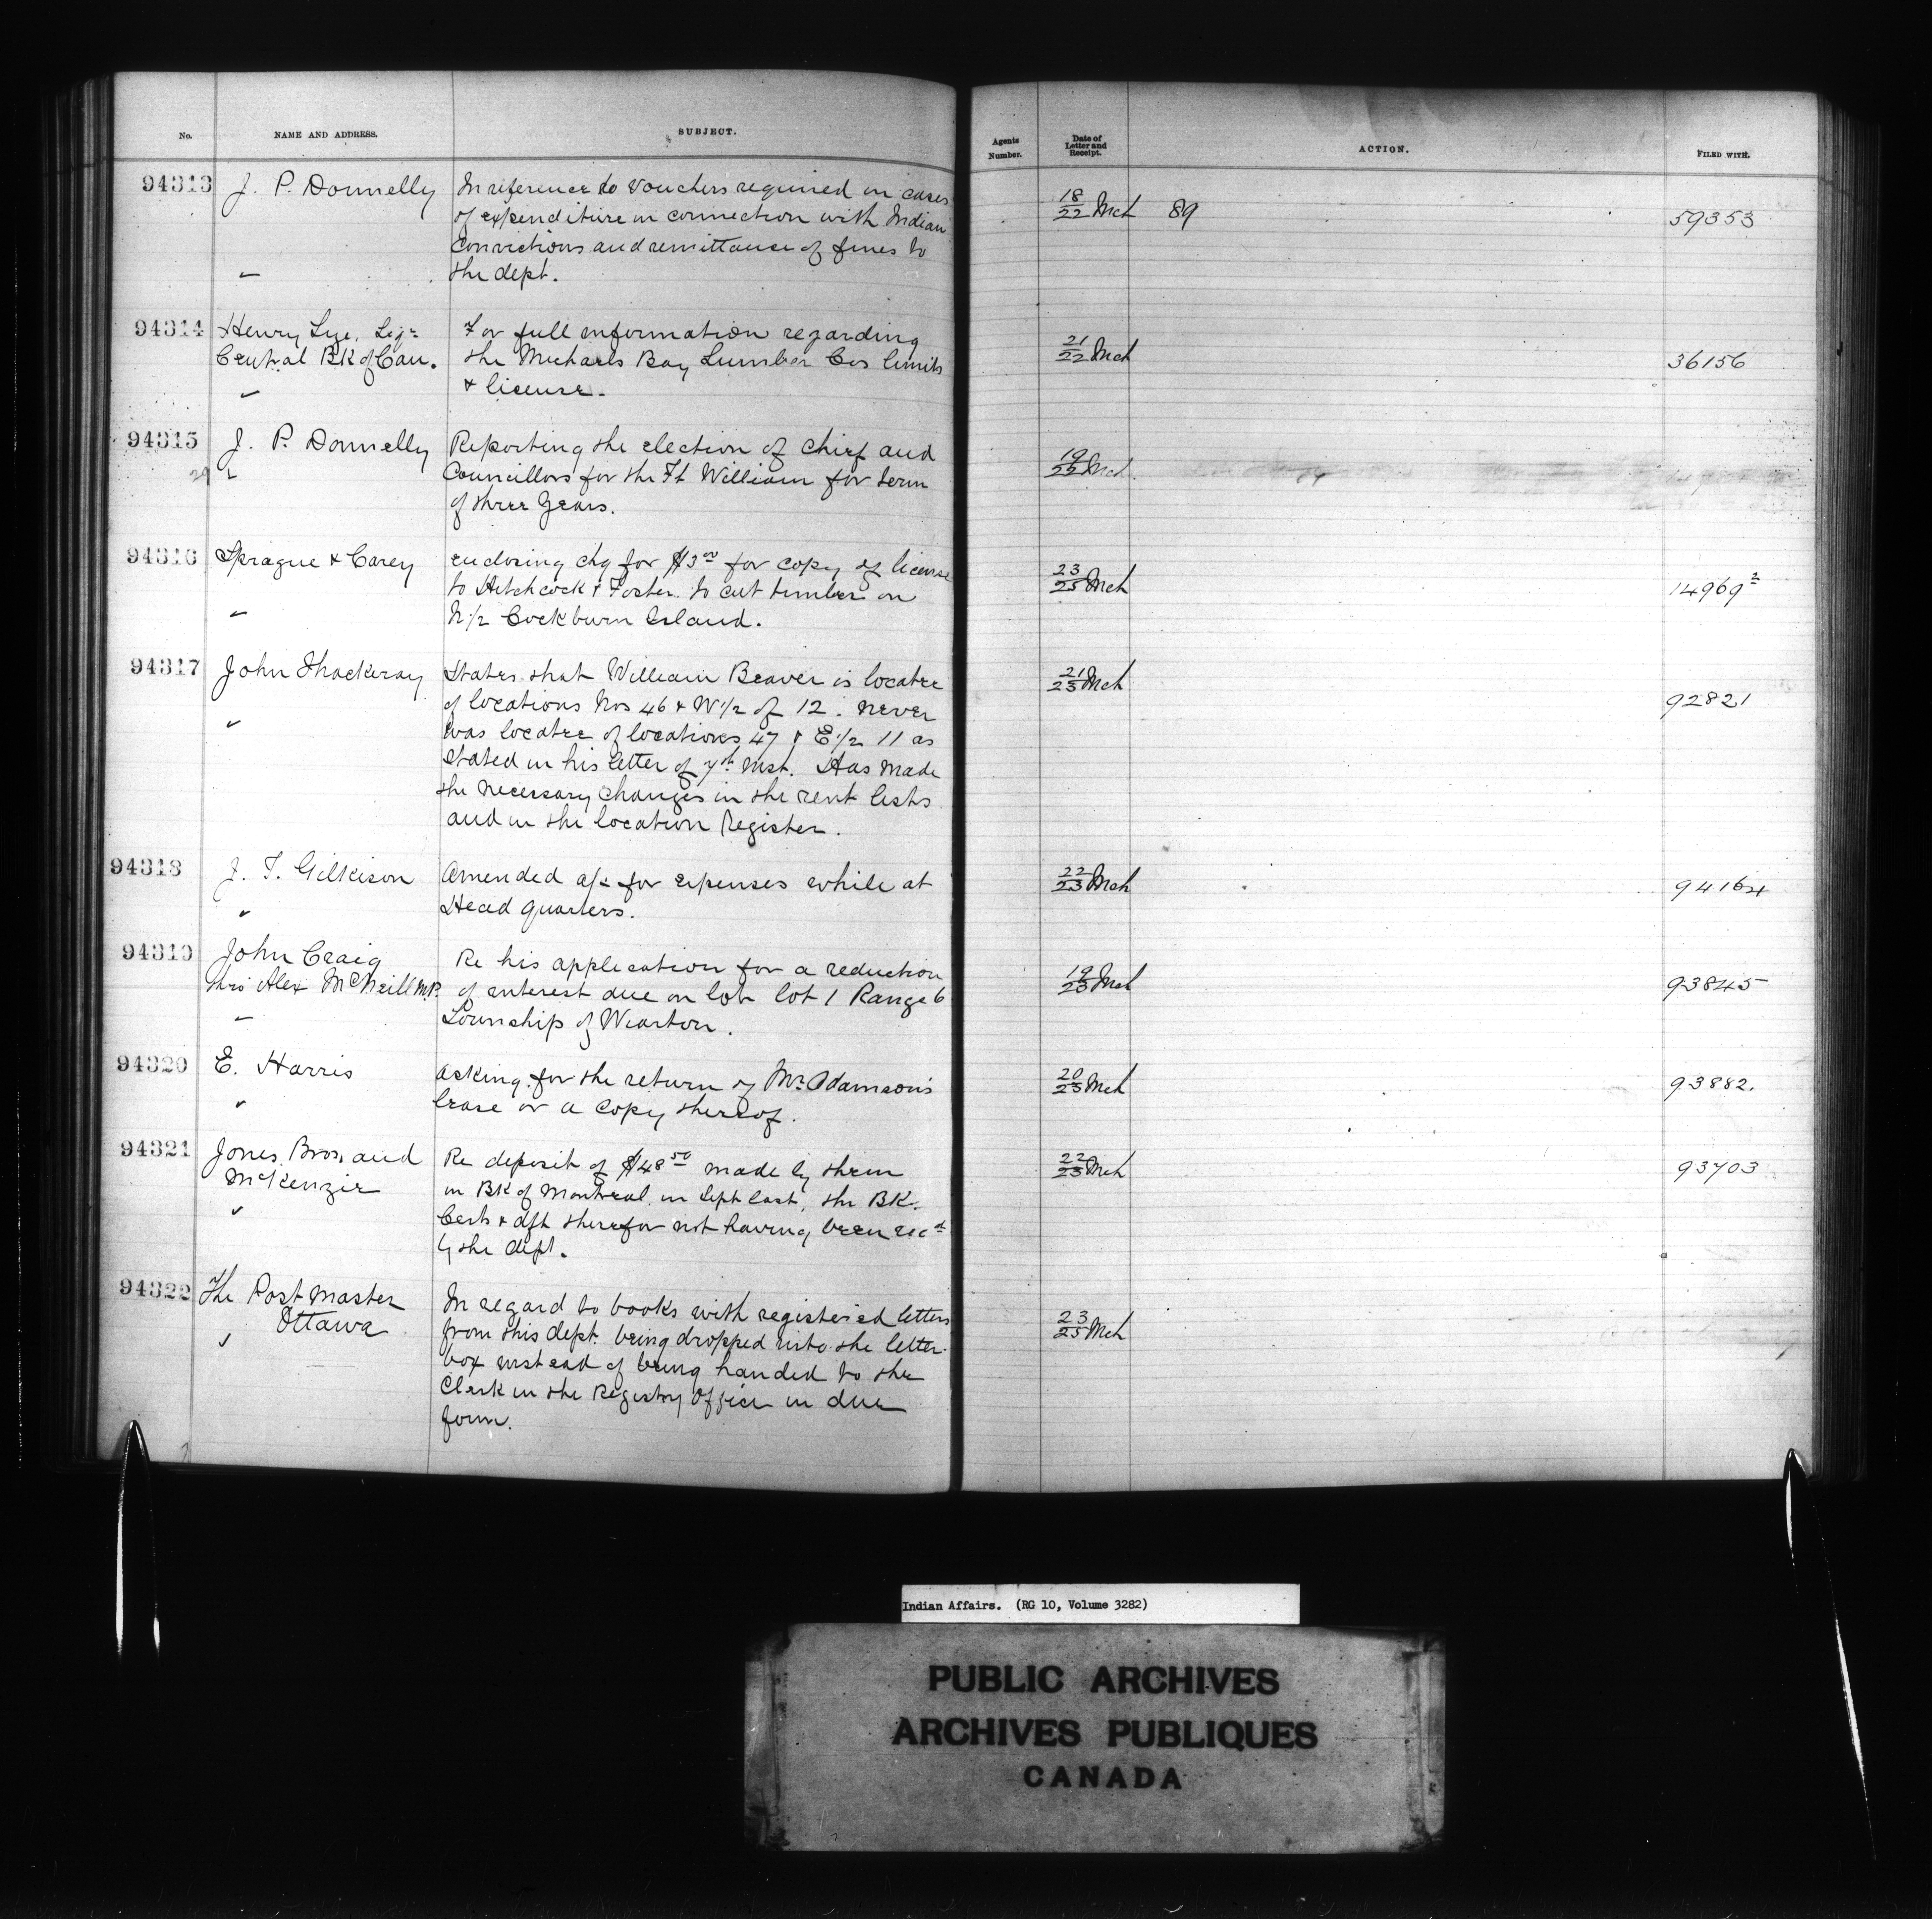 No.
NAME AND ADDRESS.
SUBJECT.
Agents Number.
Date of Letter and Receipt.
ACTION.
FILED WITH.
94313
J. P. Donnelly
In reference to vouchers required in cases
of expenditure in connection with Indian
convictions and remittance of fines to
the dept.
18/22 Mch 89
59353
94314
Henry Lye, Liqr
Central BK of Can.
For full information regarding
the Michaels Bay Lumber Cos limits
& license.
21/22 Mch
36156
94315
J. P. Donnelly
Reporting the election of chief and
Councillors for the Ft William for term
of three years.
19/22 Mch
94316
Sprague & Carey
enclosing chq for $3.00 for copy of license
to Hitchcock & Foster to cut timber on
N 1/2 Cockburn Island.
23/25 Mch
14969 2
94317
John Thackeray
States that William Beaver is locatee
of locations Nos 46 & W 1/2 of 12. never
was locatee of locations 47 & E 1/2 11 as
stated in his letter of 7th inst. Has made
the necessary changes in the rent lists
and in the location Register.
21/23 Mch
92821
94318
J. T. Gilkison
Amended a/c for expenses while at
Head quarters.
22/23 Mch
94164
94319
John Craig
thro Alex McNeill M.P.
Re his application for a reduction
of interest due on lot 1 Range 6
Township of Wiarton.
19/23 Mch
93845
94320
E. Harris
asking for the return of Mr Adamson's
lease or a copy thereof.
20/23 Mch
93882.
94321
Jones Bros, and
McKenzie
Re deposit of $48.50 made by them
in BK of Montreal in Sept last, the BK.
Certs & dft therefor not having been recd
by the dept.
22/23 Mch
93703
94322
The Post Master
Ottawa
In regard to books with registered letters
from this dept. being dropped into the letter
box instead of being handed to the
Clerk in the Registry Office in due
form.
23/25 Mch
Indian Affairs. (RG 10, Volume 3282)
PUBLIC ARCHIVES
ARCHIVES PUBLIQUES
CANADA